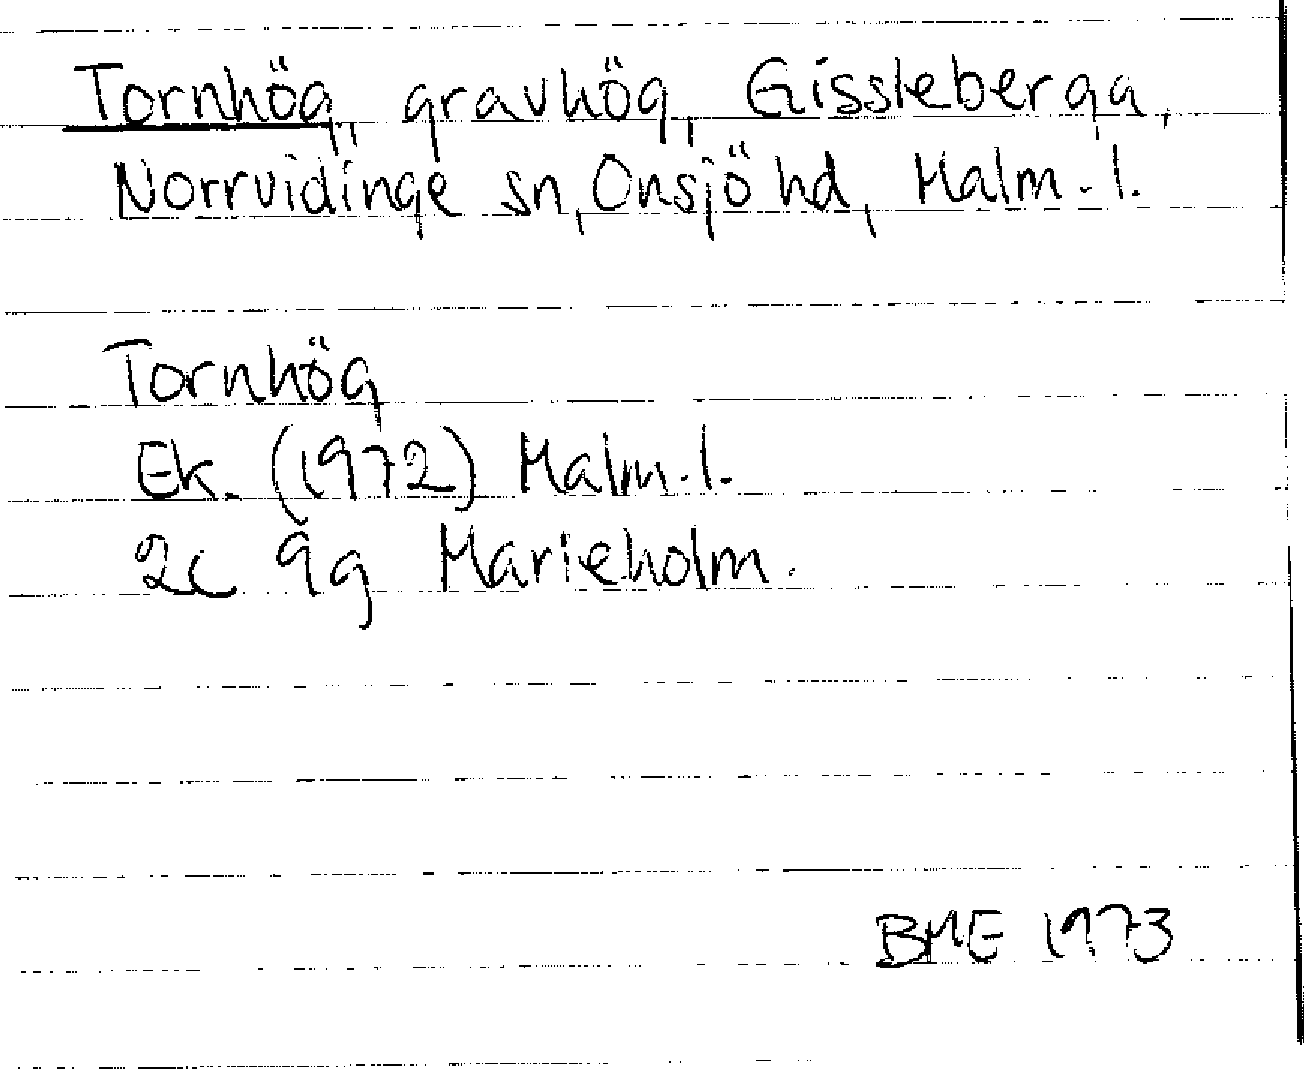 Tornhög, gravhög, Gissleberga,
Norrvidinge sn, Onsjö hd, Malm.l.
Tornhög
Ek. (1972) Malm.l.
2c 9g Marieholm.
BME 1973